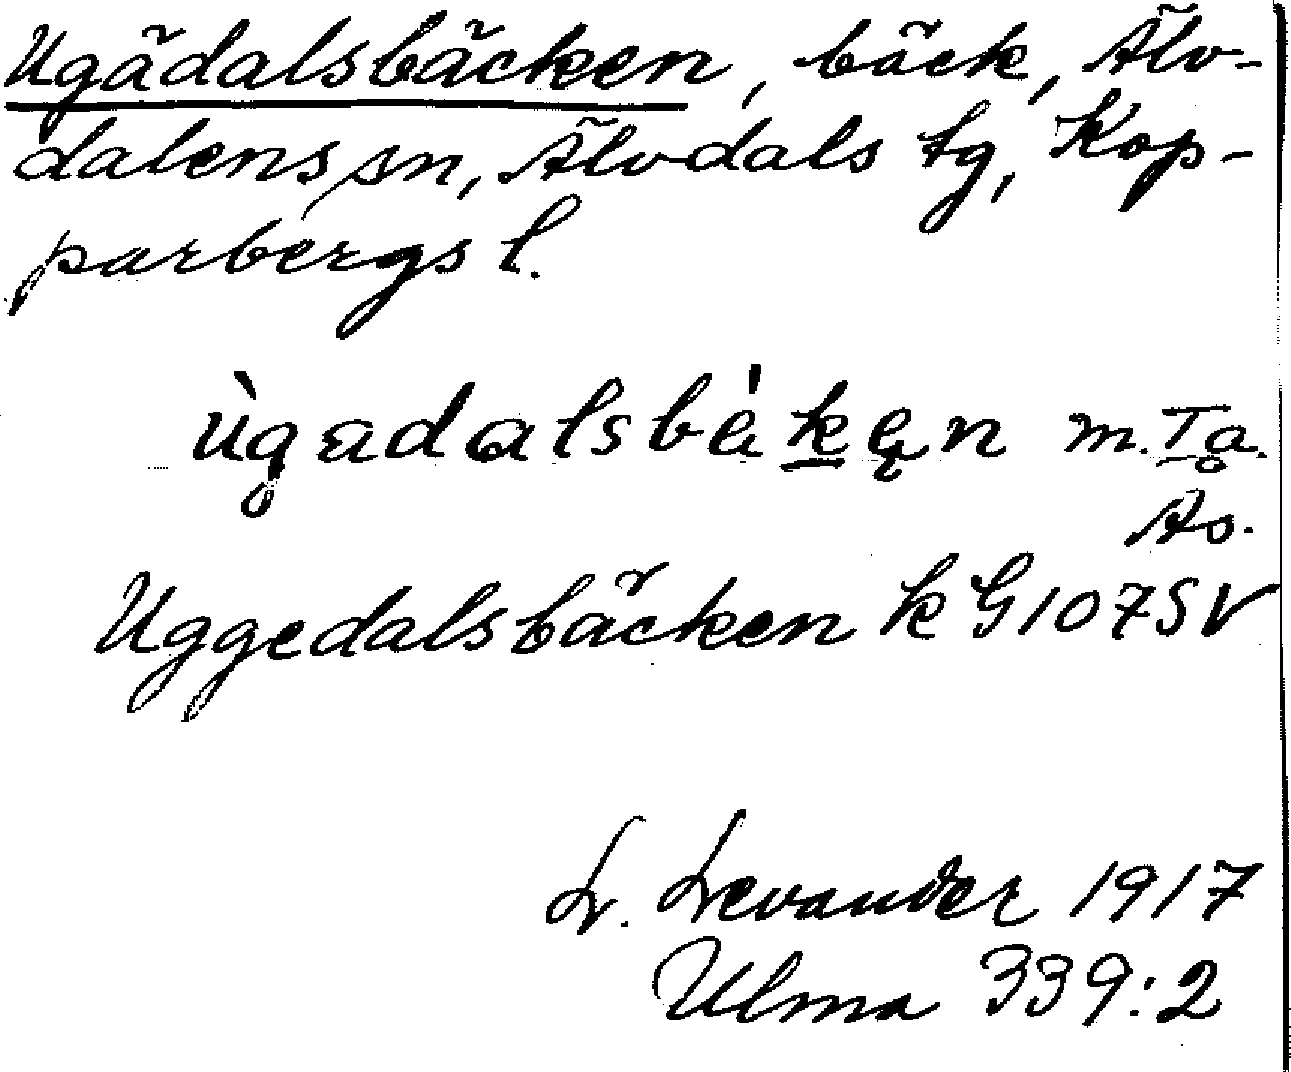 Ugädalsbäcken, bäck, Älv-
dalens sn, Älvdals tg, Kop-
parbergs l.
ùgadalsbὰkęn m. Tā.
Ås.
Uggedalsbäcken k G 107 SV
L. Levander 1917
Ulma 339:2